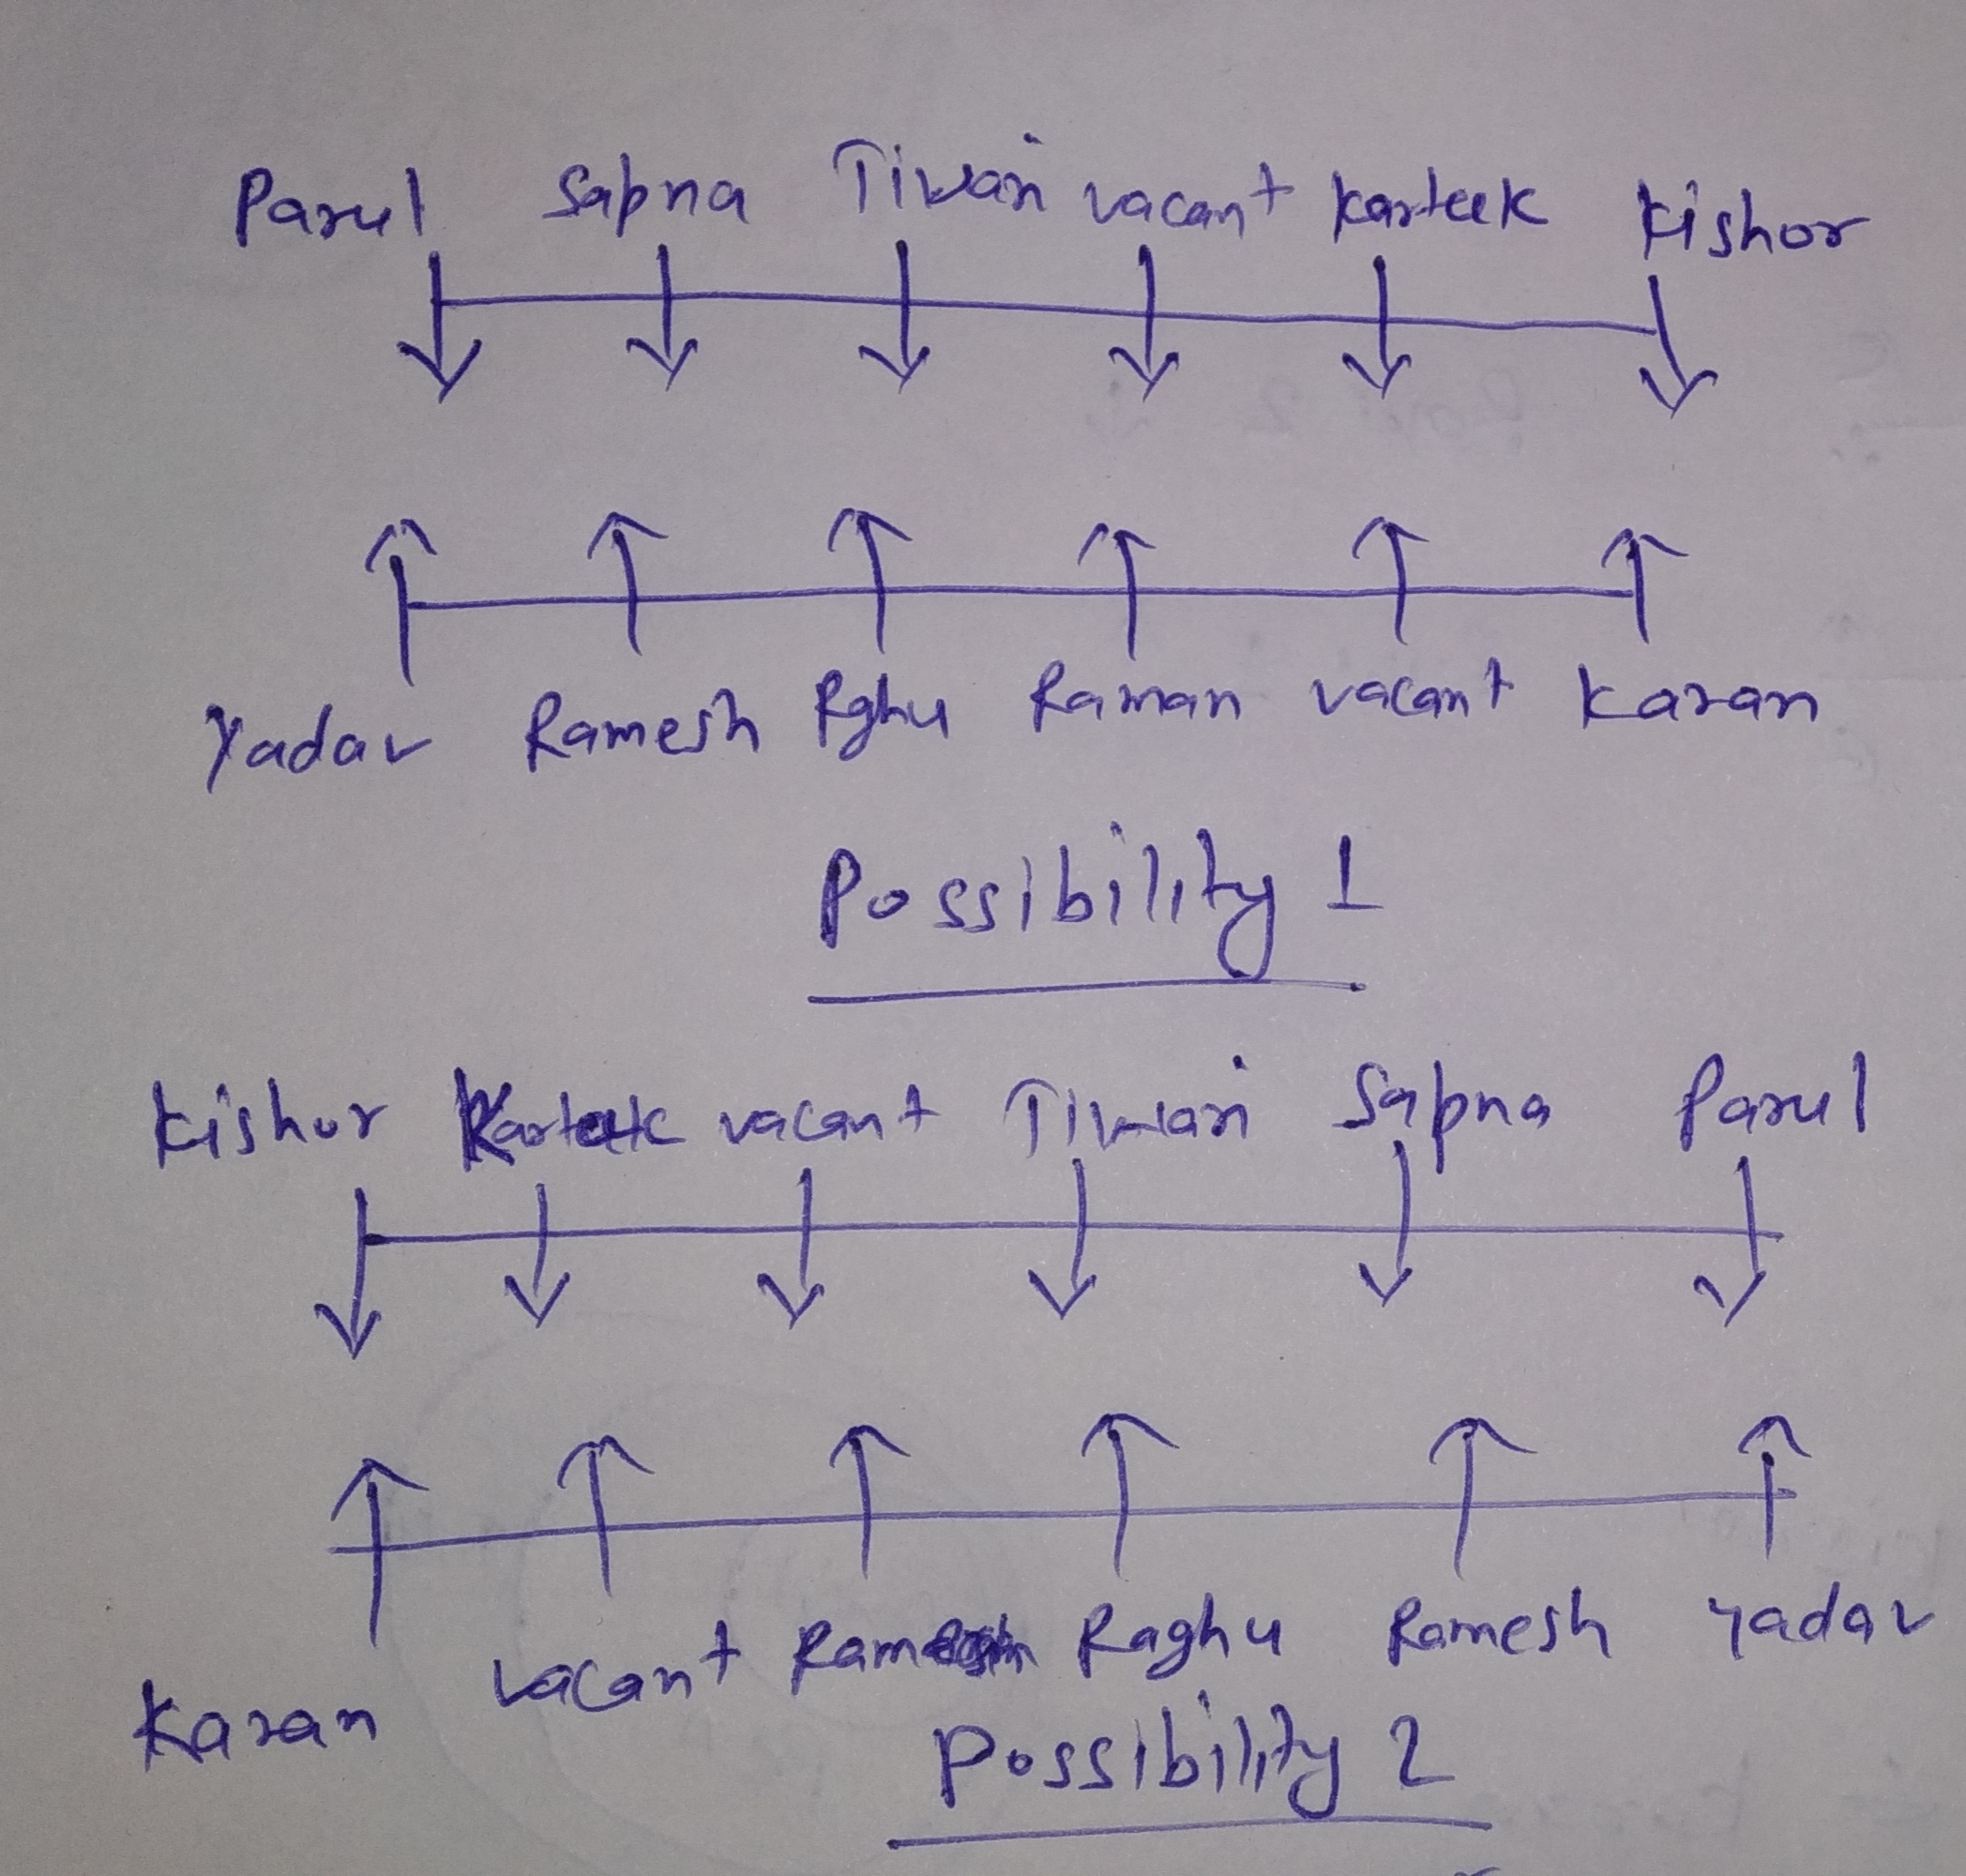 Parul Sapna Tiwari vacant Karteek Kishor
Yadav Ramesh Rghu Raman vacant Karan
Possibility 1
Kishor Karteek vacant Tiwari Sapna Parul
Karan vacant Raghu Ramesh Yadav
Possibility 2